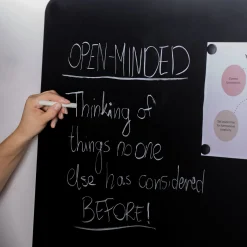 OPEN-MINDED
Thinking of
things no one
else has considered
BEFORE!